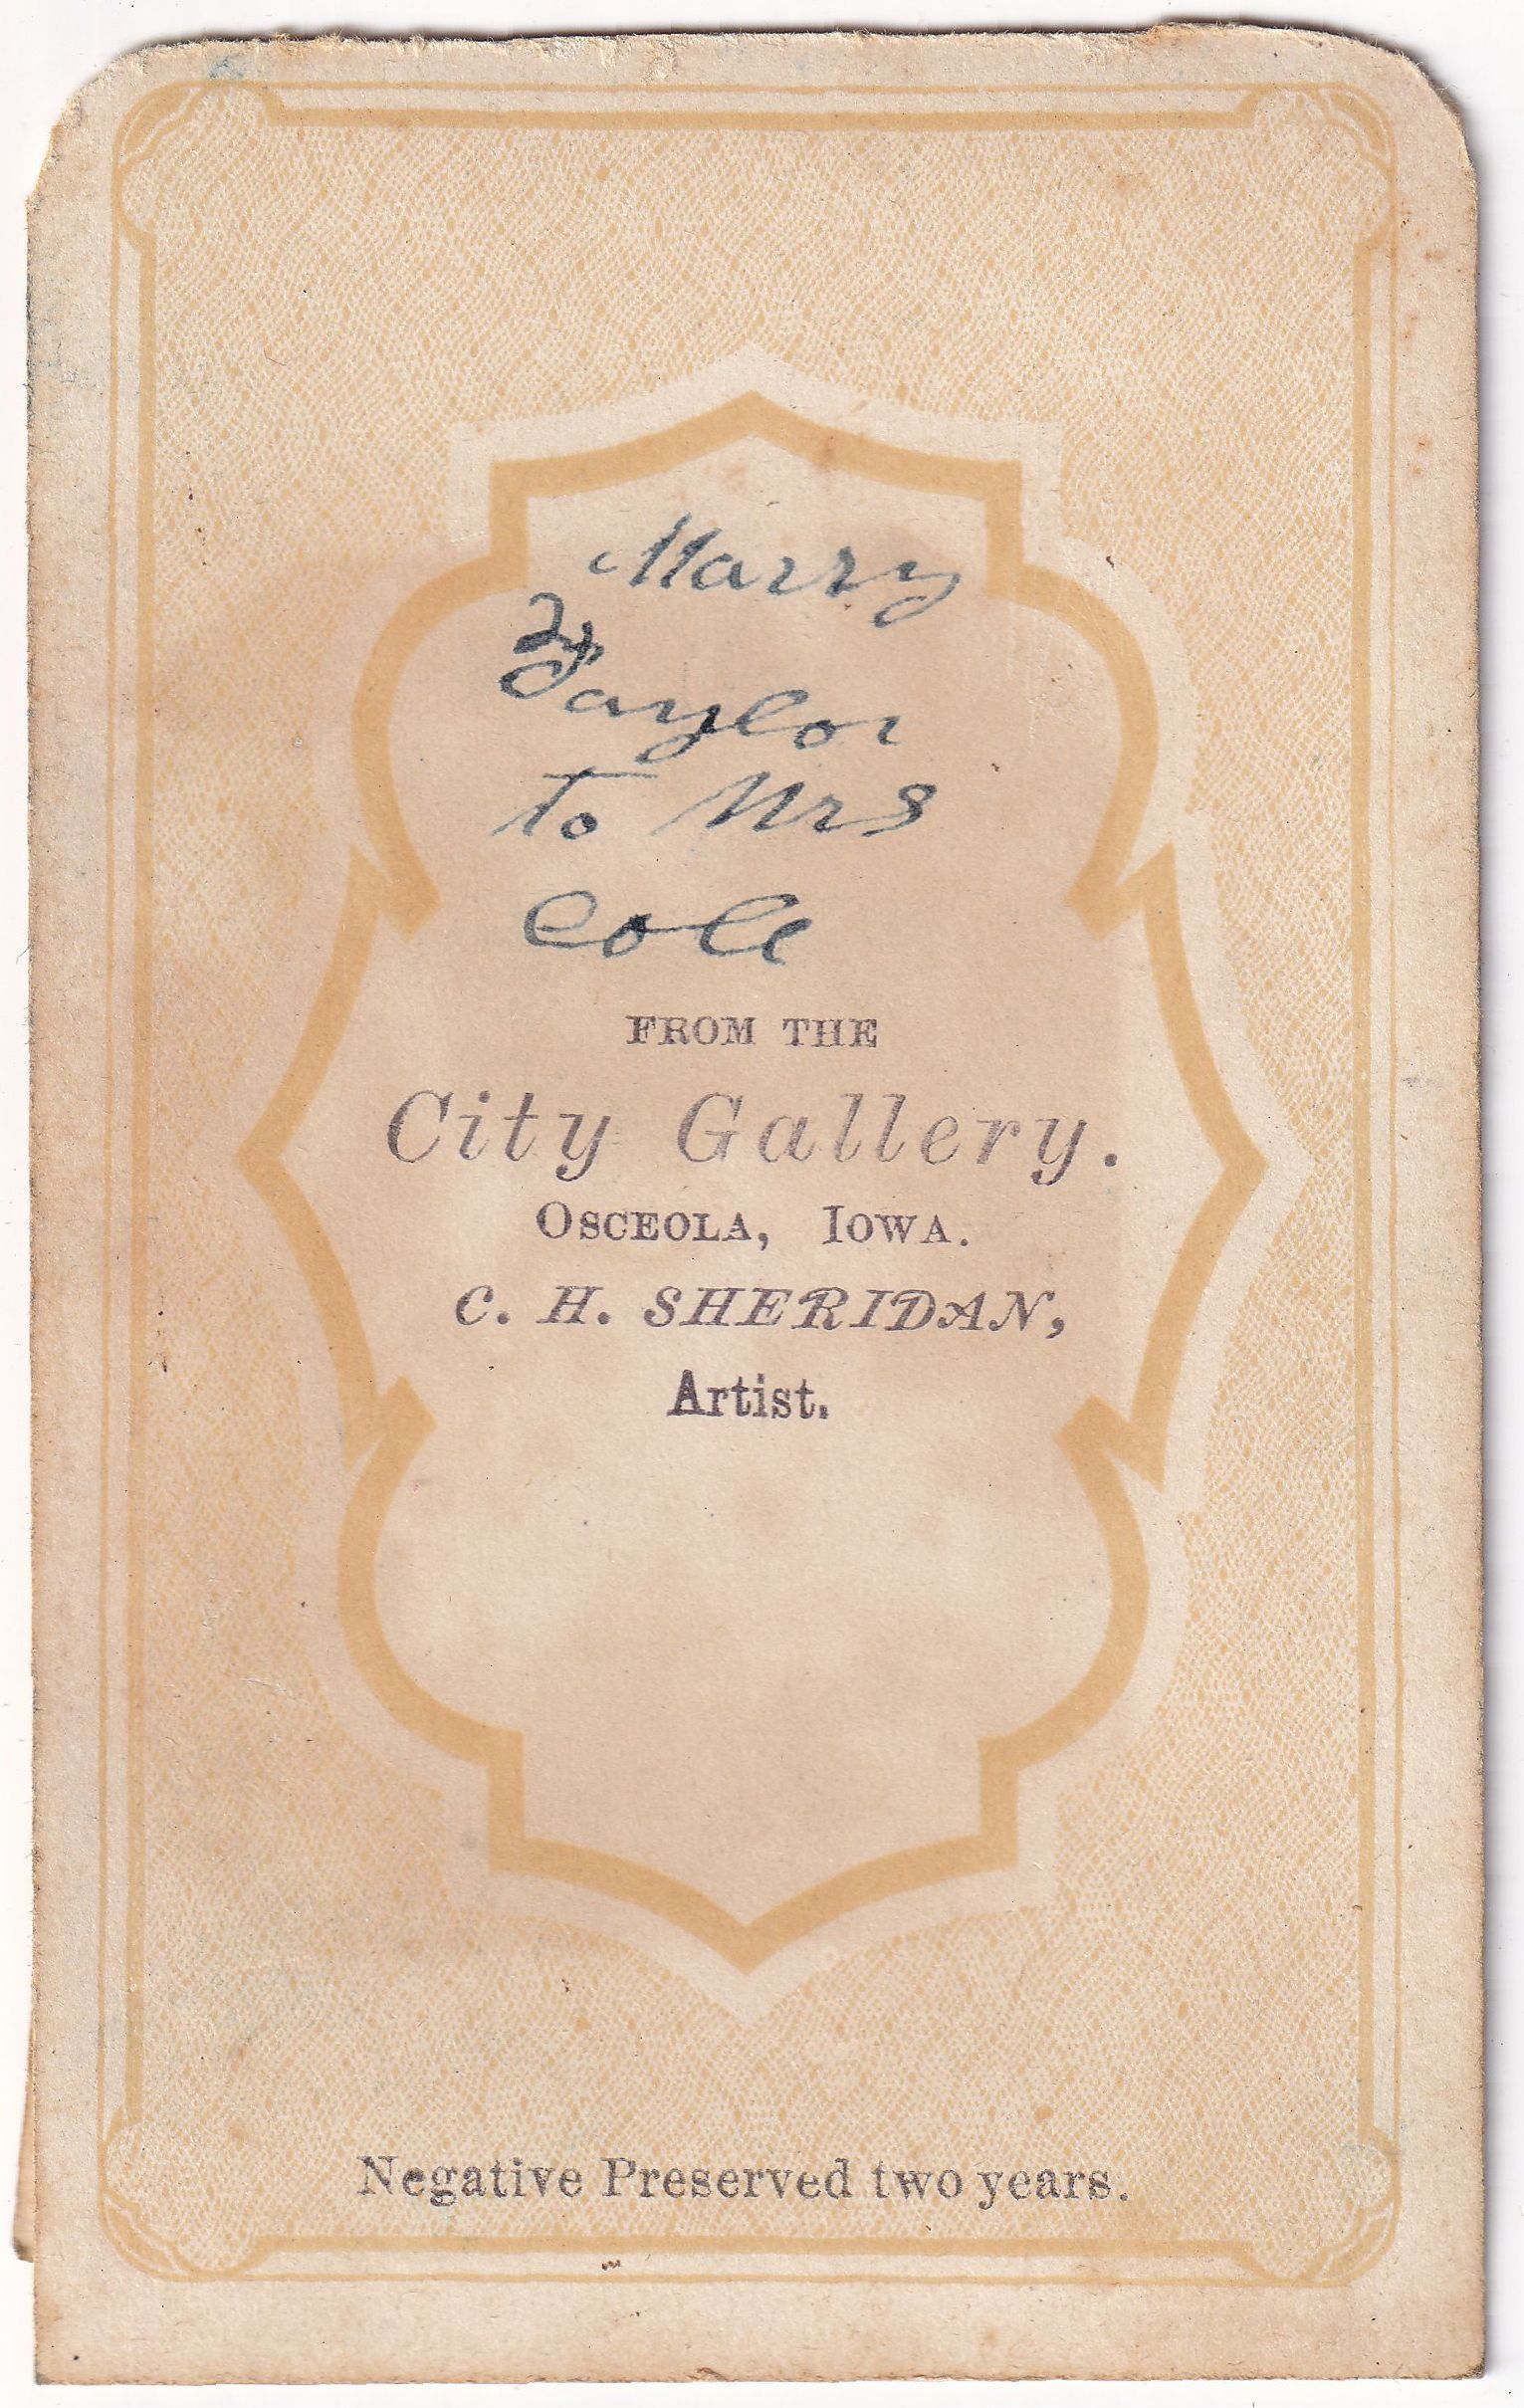 Marry
Taylor
to Mrs
Cole
FROM THE
City Gallery.
OSCEOLA, IOWA.
C. H. SHERIDAN,
Artist.
Negative Preserved two years.